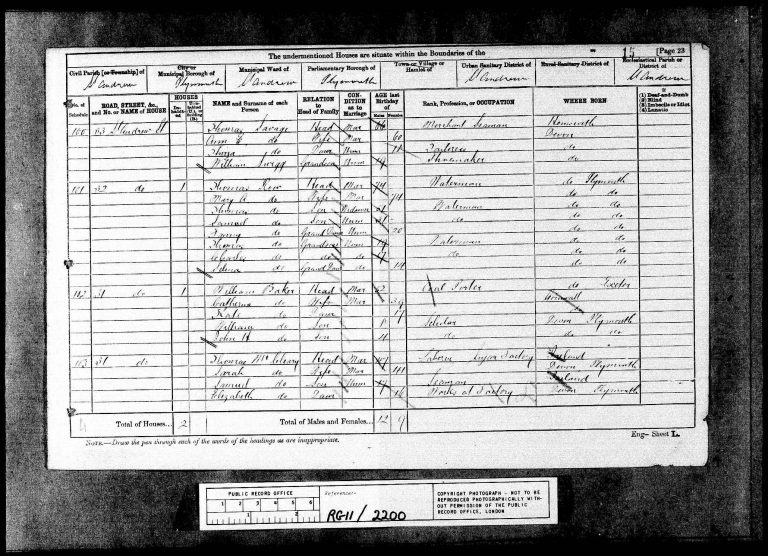 The undermentioned Houses are situate within the Boundaries of the 15 [Page 23
Civil Parish [or Township] of St Andrew
City or Municipal Borough of Plymouth
Municipal Ward of St Andrew
Parliamentary Borough of Plymouth
Town or Village or Hamlet of
Urban Sanitary District of St Andrew
Rural Sanitary District of
Ecclesiastical Parish or District of St Andrew
No. of Schedule
ROAD, STREET, &c., and No. or NAME of HOUSE
HOUSES
NAME and Surname of each Person
RELATION to Head of Family
CONDITION as to Marriage
AGE last Birthday of
Males Females
Rank, Profession, or OCCUPATION
WHERE BORN
If
(1) Deaf-and-Dumb
(2) Blind
(3) Imbecile or Idiot
(4) Lunatic
100 33 St Andrew St Thomas Savage Head Mar Merchant Seaman
Ann do Wife Mar 60 Devon
do Daur Unm Tailoress do
William Grandson Unm 19 Shoemaker do
101 32 do 1 Thomas Head Mar 74 Waterman do Plymouth
Mary A do Wife Mar 74 do do
Thomas do Son Widower Waterman do do
Samuel do Son Unm do do do
do Grand Daur Unm 20 do do
Thomas do Grandson Unm 19 Waterman do do
Charles do do do 17 do do do
Selina do Grand Daur do 14 do do
102 31 do 1 William Baker Head Mar Coal Porter do Exeter
Catherine do Wife Mar 39 Cornwall
Kate do Daur 17
William do Son 8 Scholar Devon Plymouth
John H do Son 4 do do
103 31 do Thomas McCleary Head Mar Sugar Factory Ireland
Sarah do Wife Mar 41 Devon Plymouth
Samuel do Son Unm 19 Seaman Ireland
Elizabeth do Daur 16 Works at Factory Devon Plymouth
4 Total of Houses... 2 Total of Males and Females... 12 9
NOTE.—Draw the pen through such of the words of the headings as are inappropriate.
Eng—Sheet L.
PUBLIC RECORD OFFICE
1 2 3 4 5 6
1 2
Reference:-
RG11 / 2200
COPYRIGHT PHOTOGRAPH - NOT TO BE
REPRODUCED PHOTOGRAPHICALLY WITH-
OUT PERMISSION OF THE PUBLIC
RECORD OFFICE, LONDON